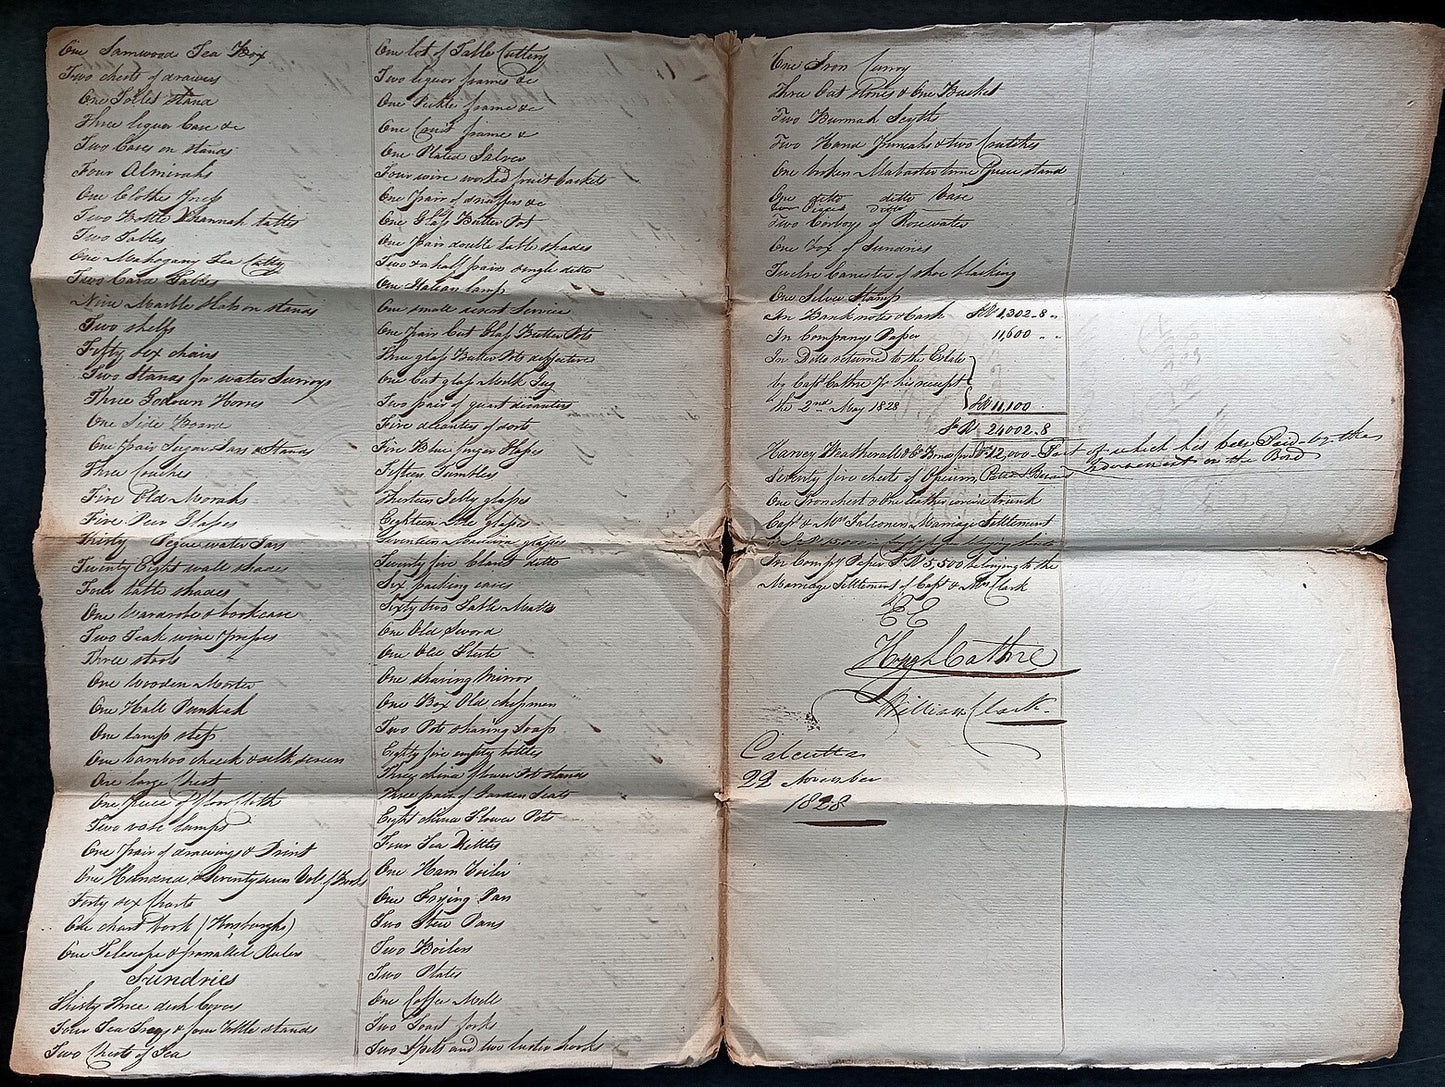 One Samwood Tea Box
Two chests of drawers
One Toilet stand
Three liquor Case &c
Two Cases on stands
Four Almirahs
One Clothes Press
Two Bottle Khannah tables
Two Tables
One Mahogany Tea Caddy
Two Card Tables
Nine Marble Slabs on stands
Two shelfs
Fifty six chairs
Two Stands for water Surroys
Three Godown Horses
One Side Board
One Pair Sugar Jars & Stands
Three Couches
Five Old Morahs
Five Peer Glapes
Thirty Pegue water Jars
Twenty Eight wall shades
Four table shades
One Wardrobe & bookcase
Two Teak wine Presses
Three stools
One Wooden Mortar
One Hall Punkah
One lamp step
One bamboo cheek & silk screen
One large Chest
One piece of Floor Cloth
Two vase lamps
One pair of drawings & Print
One Hundred & Seventy seven Vol. of Books
Forty six Charts
One chart book (Horsburgh)
One Telescope & parallel Ruler
Sundries
Thirty Three dish Covers
Four Tea Trays & four bottle stands
Two Chests of Tea
One lot of Table Cuttery
Two liquor frames &c
One Pickle frame &c
One Cruit frame &
One Plated Salver
Four wire worked fruit baskets
One Pair of snuffers &c
One Glass Butter Pot
One Pair double table shades
Two & a half pairs single ditto
One Italian lamp
One small desert Service
One Pair Cut Glass Butter Pots
Three glass Butter Pots deffective
One Cut glass Milk Jug
Two pair of quart decanters
Five decanters of sorts
Five Blue finger Glasses
Fifteen Tumbles
Thirteen Jelly glasses
Eighteen glasses
Seventeen Madeira glasses
Twenty five Claret ditto
Six packing cases
Sixty two Table Matts
One Old Sword
One Old Flute
One shaving Mirror
One Box Old chessmen
Two Pots shaving Soap
Eighty five empty bottles
Three china flower Pot stands
Three pair of Garden Seats
Eight china Flower Pots
Four Tea Kettles
One Ham Boiler
One Frying Pan
Two Stew Pans
Two Boilers
Two Plates
One Coffee Mill
Two Toast forks
Two Spits and two hooks
One Iron Surroy
Three Cat stones & One Basket
Two Burmah Scyths
Two Hand & two Crutches
One broken Alabaster time Piece stand
One ditto ditto Vase
ditto
Two Corboys of Rosewater
One Box of Sundries
Twelve Canisters of shoe blacking
One Silver Stamp
In Bank notes & Cash SaRs 1,302..8 "
In Companys Paper 11,600 " "
In Ditto returned to the Estate
by Capt Cathre Pr his receipt
the 2nd May 1828 SaRs 11,100
SaRs 24002..8
Harvey Weatherall & Co Bond for SaRs 12,000 - Part of which has been Paid by the
Seventy five chests of Opeium Government on the Bond
One Iron chest & One leather trunk
Capt & Mrs Falconers Marriage Settlement
In Comps Paper SaRs 5,500 belonging to the
Marriage Settlement of Capt & Mrs Clark
EE
Hugh Cathre
William Clark
Calcutta
22 November
1828